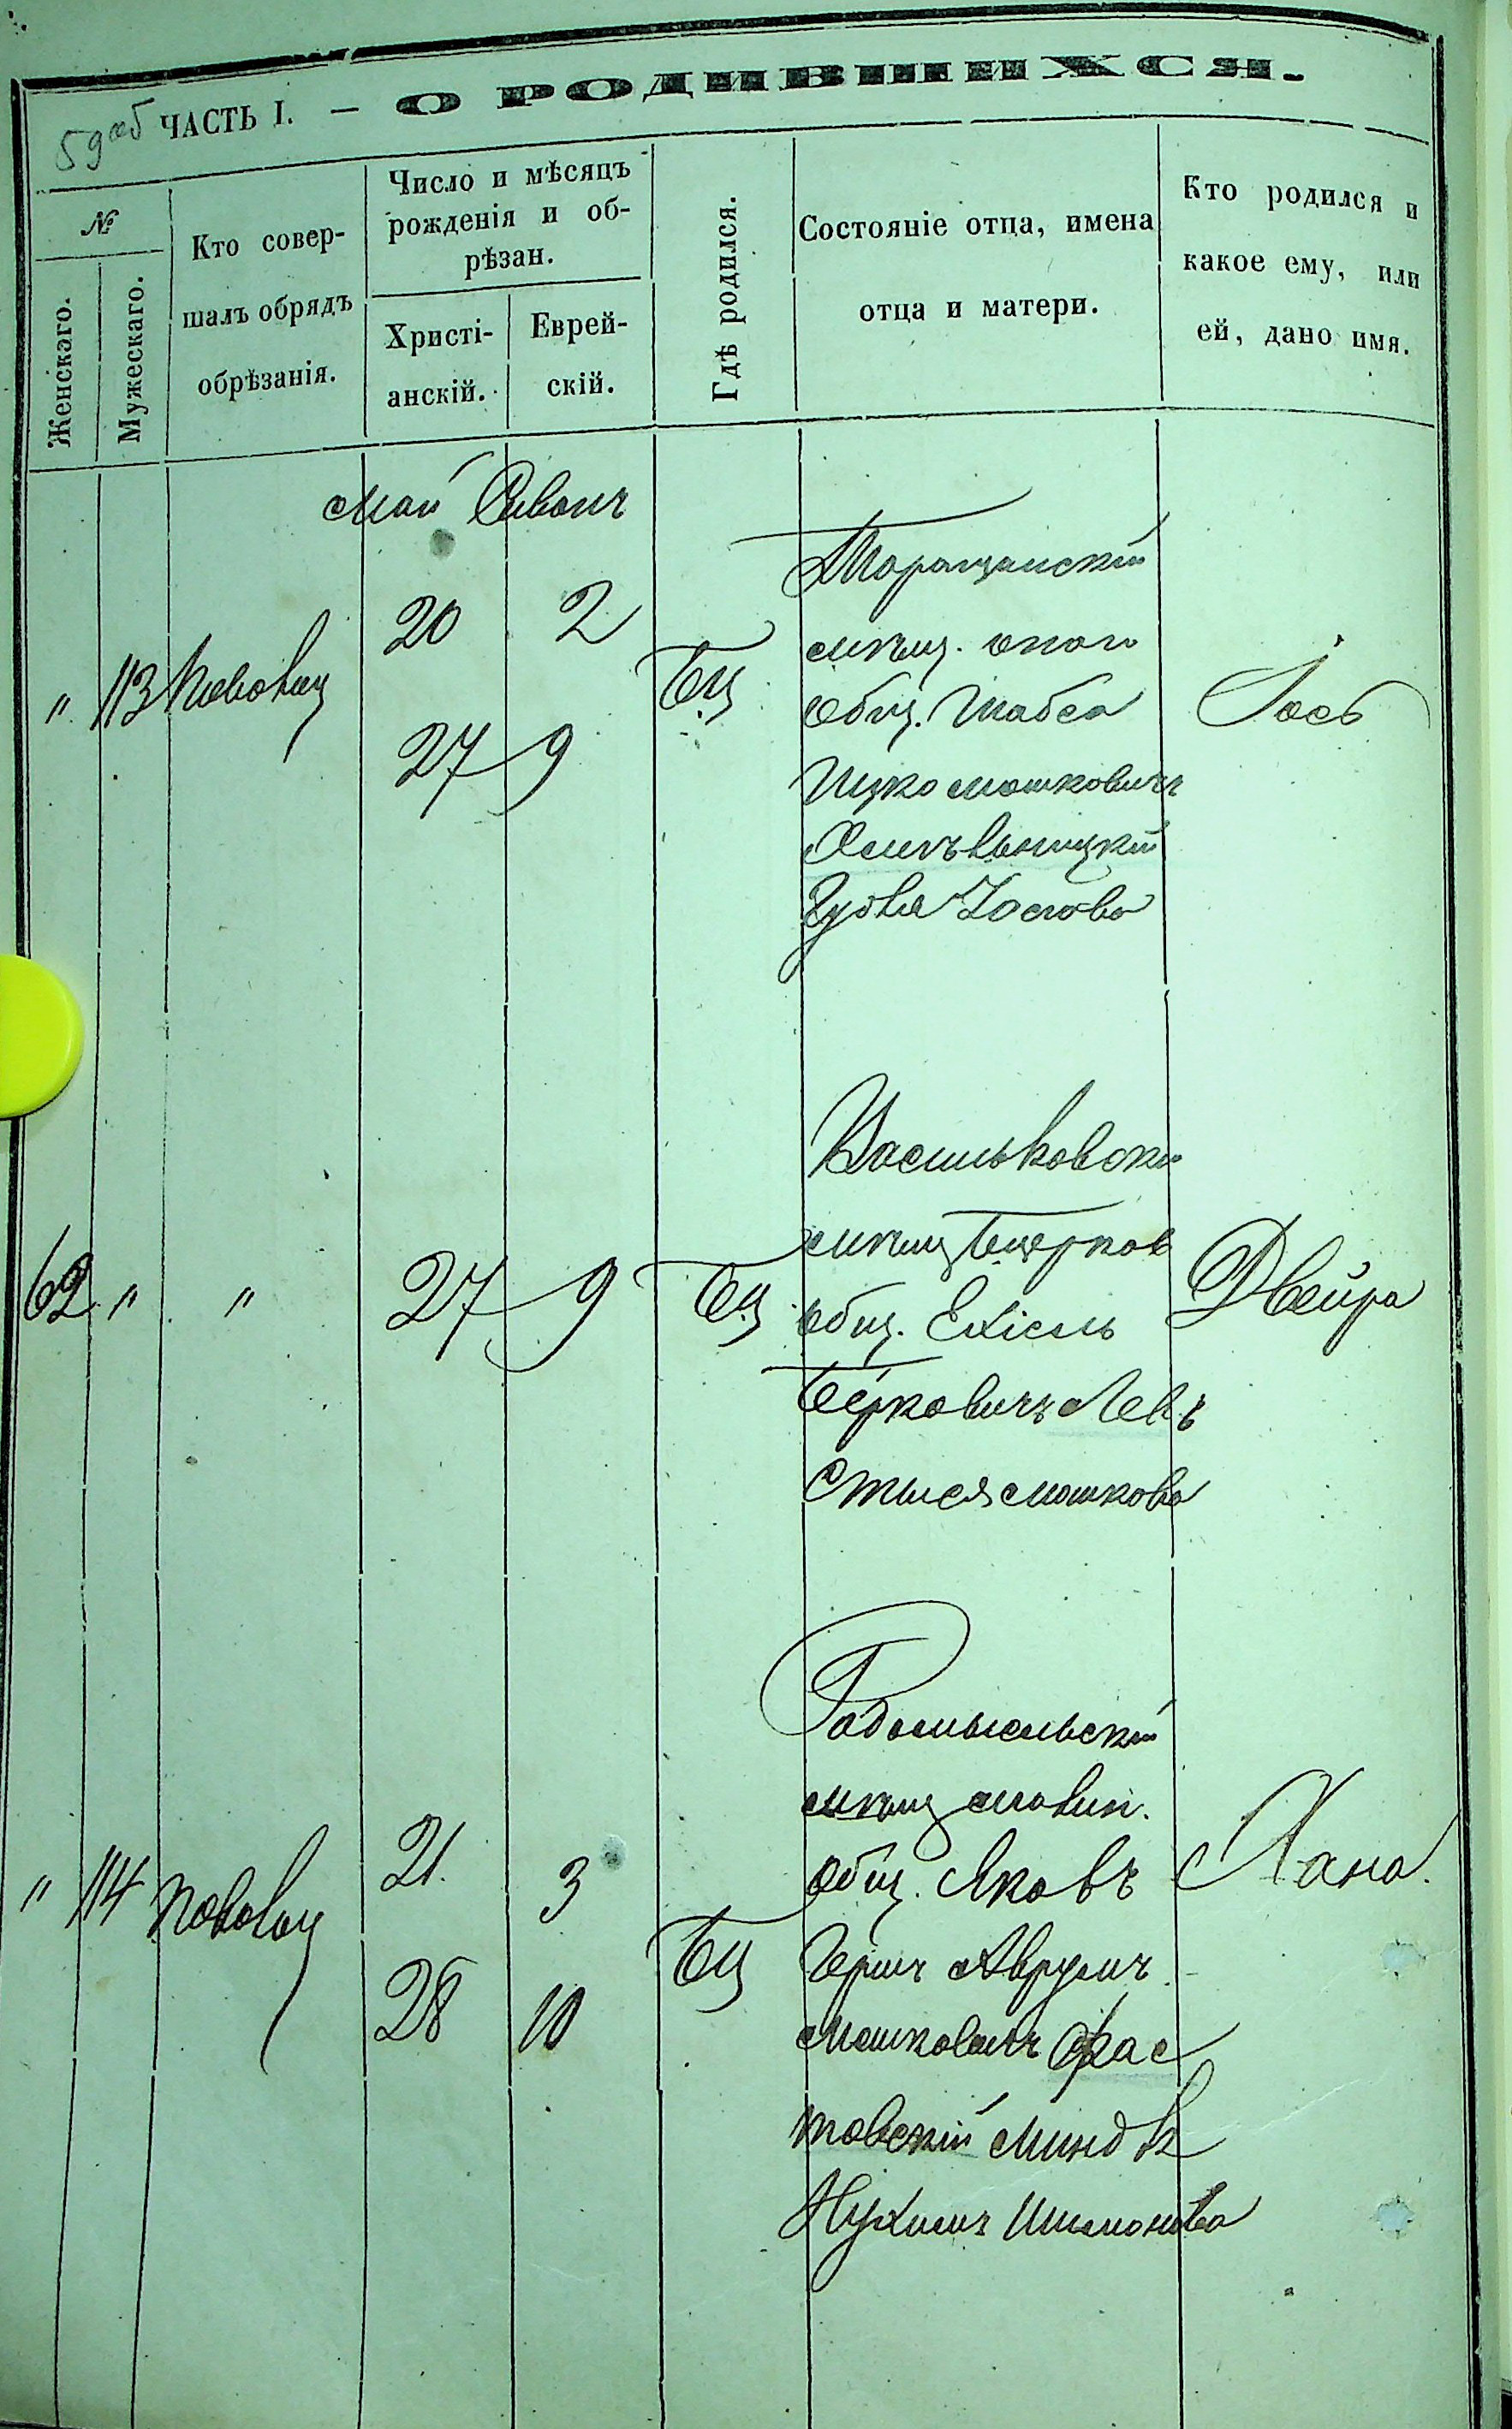 59 об ЧАСТЬ I. — О РОДИВШИХСЯ.
№
Женскаго.
Мужескаго.
Кто совер-
шалъ обрядъ
обрѣзанія.
Число и мѣсяцъ
рожденія и об-
рѣзан.
Христі-
анскій.
Еврей-
скій.
Гдѣ родился.
Состояніе отца, имена
отца и матери.
Кто родился и
какое ему, или
ей, дано имя.
Май Сивонъ
" 113
20 2
27 9
БЦ
Таращанскій
мѣщ. оного
общ. Шабса
Ицко Мошковичъ
Зуовля Іосіова
Іось
62 " "
27 9
БЦ
Васильковскій
мѣщ Бцерков
общ. Ехіель
Берковичъ Левъ
Стыся Мошкова
Двейра
" 114
21. 3
28 10
БЦ
Радомысльскій
мѣщ
общ. Яковъ
Герш Аврумъ
Мошковичъ Фас
товскій Миндля
Нухимъ Шимонова
Хана.